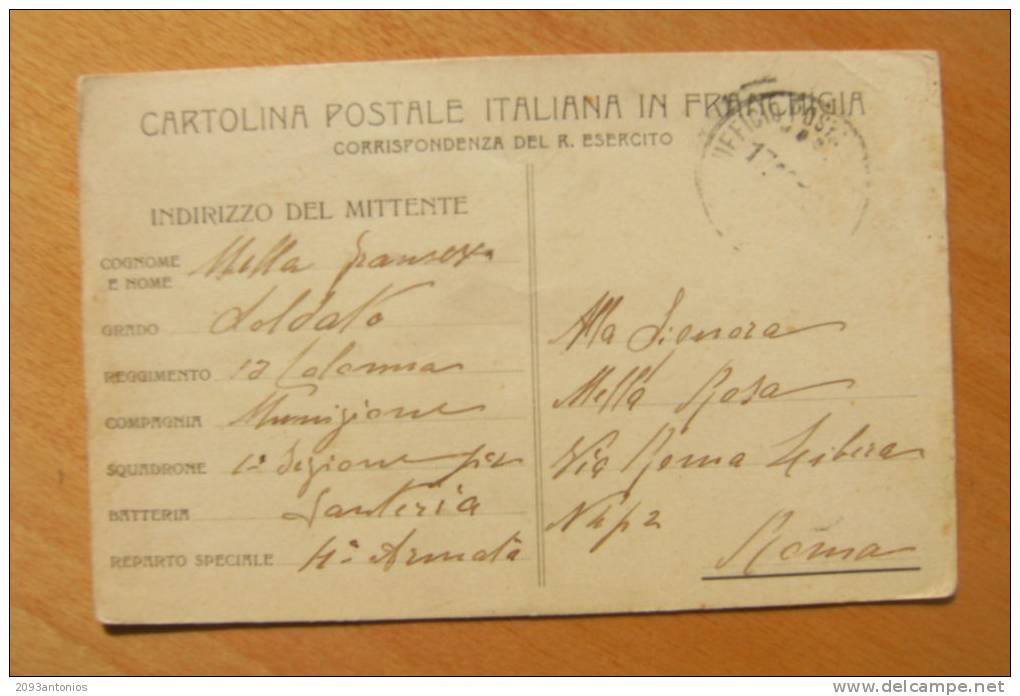 CARTOLINA POSTALE ITALIANA IN FRANCHIGIA
CORRISPONDENZA DEL R. ESERCITO
UFFICIO POSTA
17
INDIRIZZO DEL MITTENTE
COGNOME E NOME Mella
GRADO Soldato
REGGIMENTO 12 Colonna
COMPAGNIA Munizione
SQUADRONE 1a Sezione per
BATTERIA Fanteria
REPARTO SPECIALE 4a Armata
Alla Signora
Mella Rosa
Via Roma Libera
Roma
2093antonios
delcampe.net